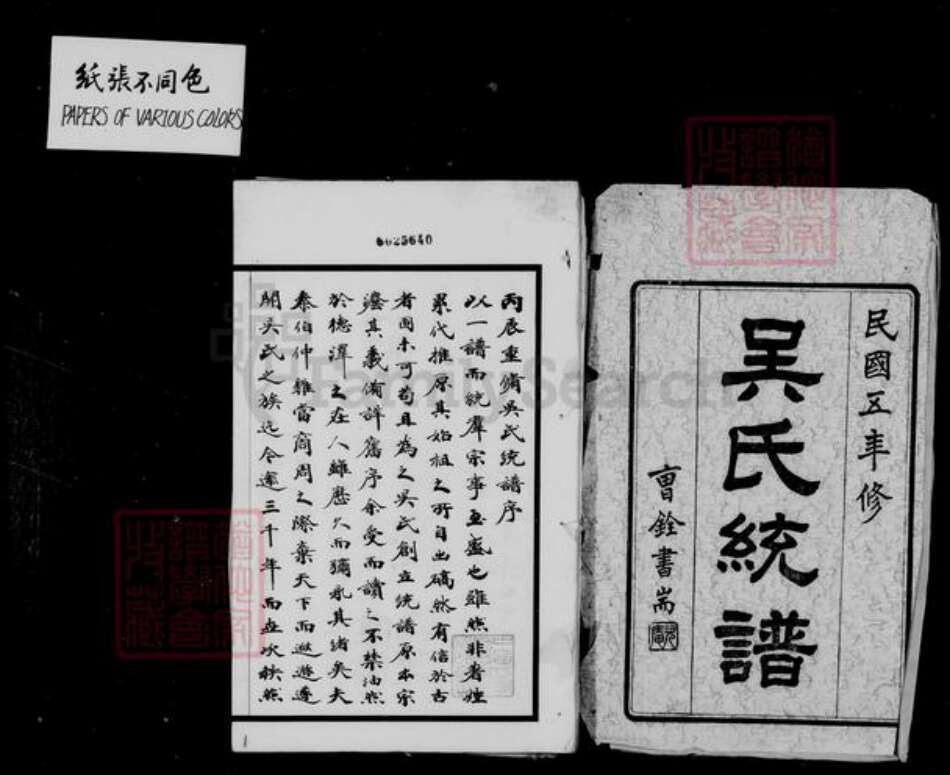 紙張不同色
PAPERS OF VARIOUS COLORS
民國五年修
吳氏統譜
曹銓書耑
6025640
丙辰重脩吳氏統譜序
以一譜而統羣宗事亟盛也雖然非著姓
累代推原其始祖之所自出碻然有信於古
者固未可苟且為之吳氏創立統譜原本宗
灋其義備詳舊序余受而讀之不禁油然
於德澤之在人雖歷久而彌永其緒矣夫
泰伯仲雍當商周之際棄天下而遯遊逢
開吳氏之族迄今逾三千年而世次秩然
FamilySearch